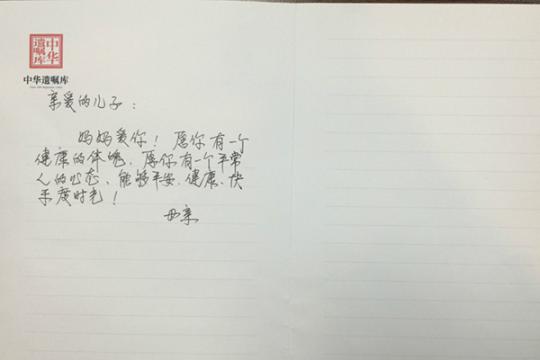 中华
遗嘱库
中华遗嘱库
亲爱的儿子：
妈妈爱你！愿你有一个
健康的体魄、愿你有一个平常
人的心态、能够平安、健康、快
乐度时光！
母亲